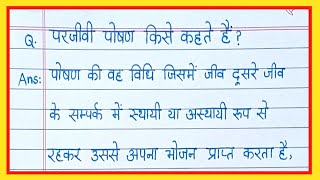 Q. परजीवी पोषण किसे कहते हैं?
Ans: पोषण की वह विधि जिसमें जीव दूसरे जीव
के सम्पर्क में स्थायी या अस्थायी रूप से
रहकर उससे अपना भोजन प्राप्त करता है,